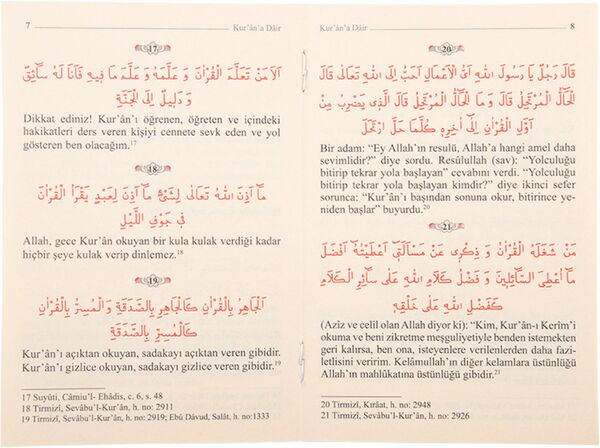 7 Kur’ân’a Dâir
17
اَلَا مَنْ تَعَلَّمَ الْقُرْاٰنَ وَ عَلَّمَهُ وَ عَلَّمَ مَا فِيهِ فَاَنَا لَهُ سَائِقٌ
وَ دَلِيلٌ اِلَى الْجَنَّةِ
Dikkat ediniz! Kur’ân’ı öğrenen, öğreten ve içindeki
hakikatleri ders veren kişiyi cennete sevk eden ve yol
gösteren ben olacağım.17
18
مَا اَذِنَ اللهُ تَعَالٰى لِشَيْءٍ مَا اَذِنَ لِعَبْدٍ يَقْرَأُ الْقُرْاٰنَ
فِي جَوْفِ اللَّيْلِ
Allah, gece Kur’ân okuyan bir kula kulak verdiği kadar
hiçbir şeye kulak verip dinlemez.18
19
اَلْجَاهِرُ بِالْقُرْاٰنِ كَالْجَاهِرِ بِالصَّدَقَةِ وَ الْمُسِرُّ بِالْقُرْاٰنِ
كَالْمُسِرِّ بِالصَّدَقَةِ
Kur’ân’ı açıktan okuyan, sadakayı açıktan veren gibidir.
Kur’ân’ı gizlice okuyan, sadakayı gizlice veren gibidir.19
17 Suyûti, Câmiu’l- Ehâdis, c. 6, s. 48
18 Tirmizî, Sevâbu’l-Kur’ân, h. no: 2911
19 Tirmizî, Sevâbu’l-Kur’ân, h. no: 2919; Ebû Dâvud, Salât, h. no:1333
Kur’ân’a Dâir 8
20
قَالَ رَجُلٌ يَا رَسُولَ اللهِ اَىُّ الْاَعْمَالِ اَحَبُّ اِلَى اللهِ تَعَالٰى قَالَ
اَلْحَالُّ الْمُرْتَحِلُ قَالَ وَ مَا الْحَالُّ الْمُرْتَحِلُ قَالَ الَّذِي يَضْرِبُ مِنْ
اَوَّلِ الْقُرْاٰنِ اِلٰى اٰخِرِهِ كُلَّمَا حَلَّ ارْتَحَلَ
Bir adam: “Ey Allah’ın resulü, Allah’a hangi amel daha
sevimlidir?” diye sordu. Resûlullah (sav): “Yolculuğu
bitirip tekrar yola başlayan” cevabını verdi. “Yolculuğu
bitirip tekrar yola başlayan kimdir?” diye ikinci sefer
sorunca: “Kur’ân’ı başından sonuna okur, bitirince ye-
niden başlar” buyurdu.20
21
مَنْ شَغَلَهُ الْقُرْاٰنُ وَ ذِكْرِي عَنْ مَسْاَلَتِي اَعْطَيْتُهُ اَفْضَلَ
مَا اُعْطِي السَّائِلِينَ وَ فَضْلُ كَلَامِ اللهِ عَلٰى سَائِرِ الْكَلَامِ
كَفَضْلِ اللهِ عَلٰى خَلْقِهِ
(Azîz ve celîl olan Allah diyor ki): “Kim, Kur’ân-ı Kerîm’i
okuma ve beni zikretme meşguliyetiyle benden istemekten
geri kalırsa, ben ona, isteyenlere verilenlerden daha fazi-
letlisini veririm. Kelâmullah’ın diğer kelamlara üstünlüğü
Allah’ın mahlûkatına üstünlüğü gibidir.21
20 Tirmizî, Kıraat, h. no: 2948
21 Tirmizî, Sevâbu’l-Kur’ân, h. no: 2926